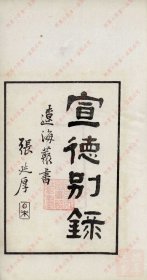 宣德別錄
遼海叢書
張延厚